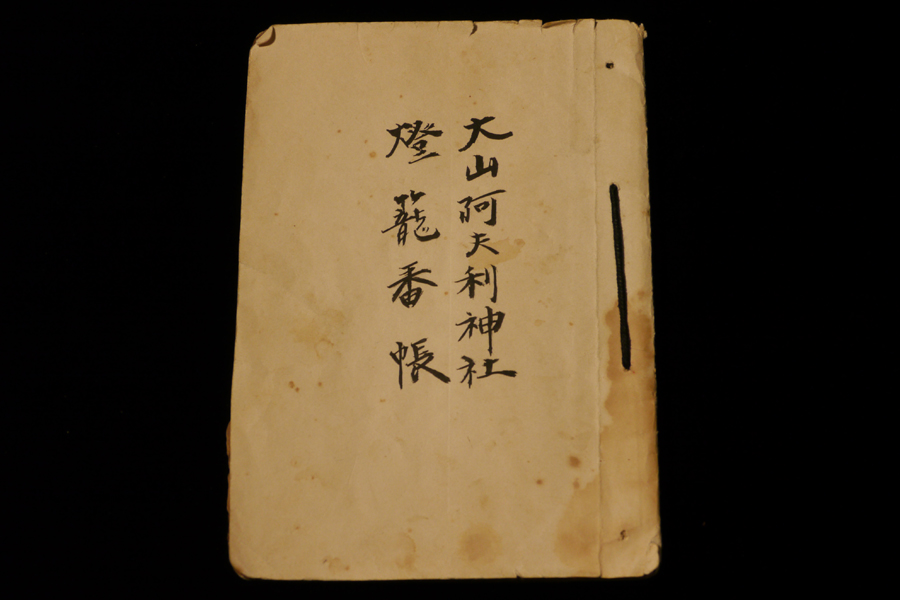 大山阿夫利神社
燈籠番帳